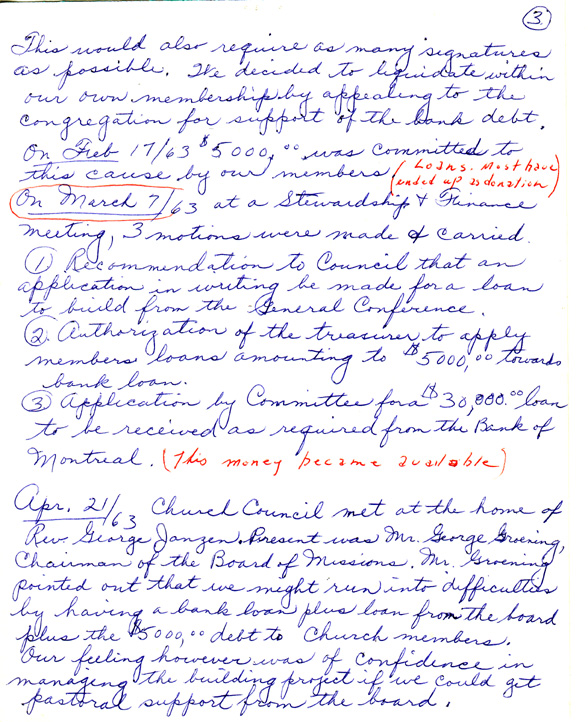 3
This would also require as many signatures
as possible. We decided to liquidate within
our own membership by appealing to the
congregation for support of the bank debt.
On Feb 17/63 $5000,.00 was committed to
this cause by our members (Loans. Most have
ended up as donation)
On March 7/63 at a Stewardship & Finance
meeting, 3 motions were made & carried.
① Recommendation to Council that an
application in writing be made for a loan
to build from the General Conference.
②. Authorization of the treasurer to apply
members loans amounting to $5000,.00 towards
bank loan.
③ Application by Committee for a $30,000.00 loan
to be received as required from the Bank of
Montreal. (This money became available)
Apr. 21/63 Church Council met at the home of
Rev. George Janzen. Present was Mr. George Groening,
Chairman of the Board of Missions. Mr. Groening
pointed out that we might run into difficulties
by having a bank loan plus loan from the board
plus the $5000,.00 debt to Church members.
Our feeling however was of confidence in
managing the building project if we could get
pastoral support from the board.